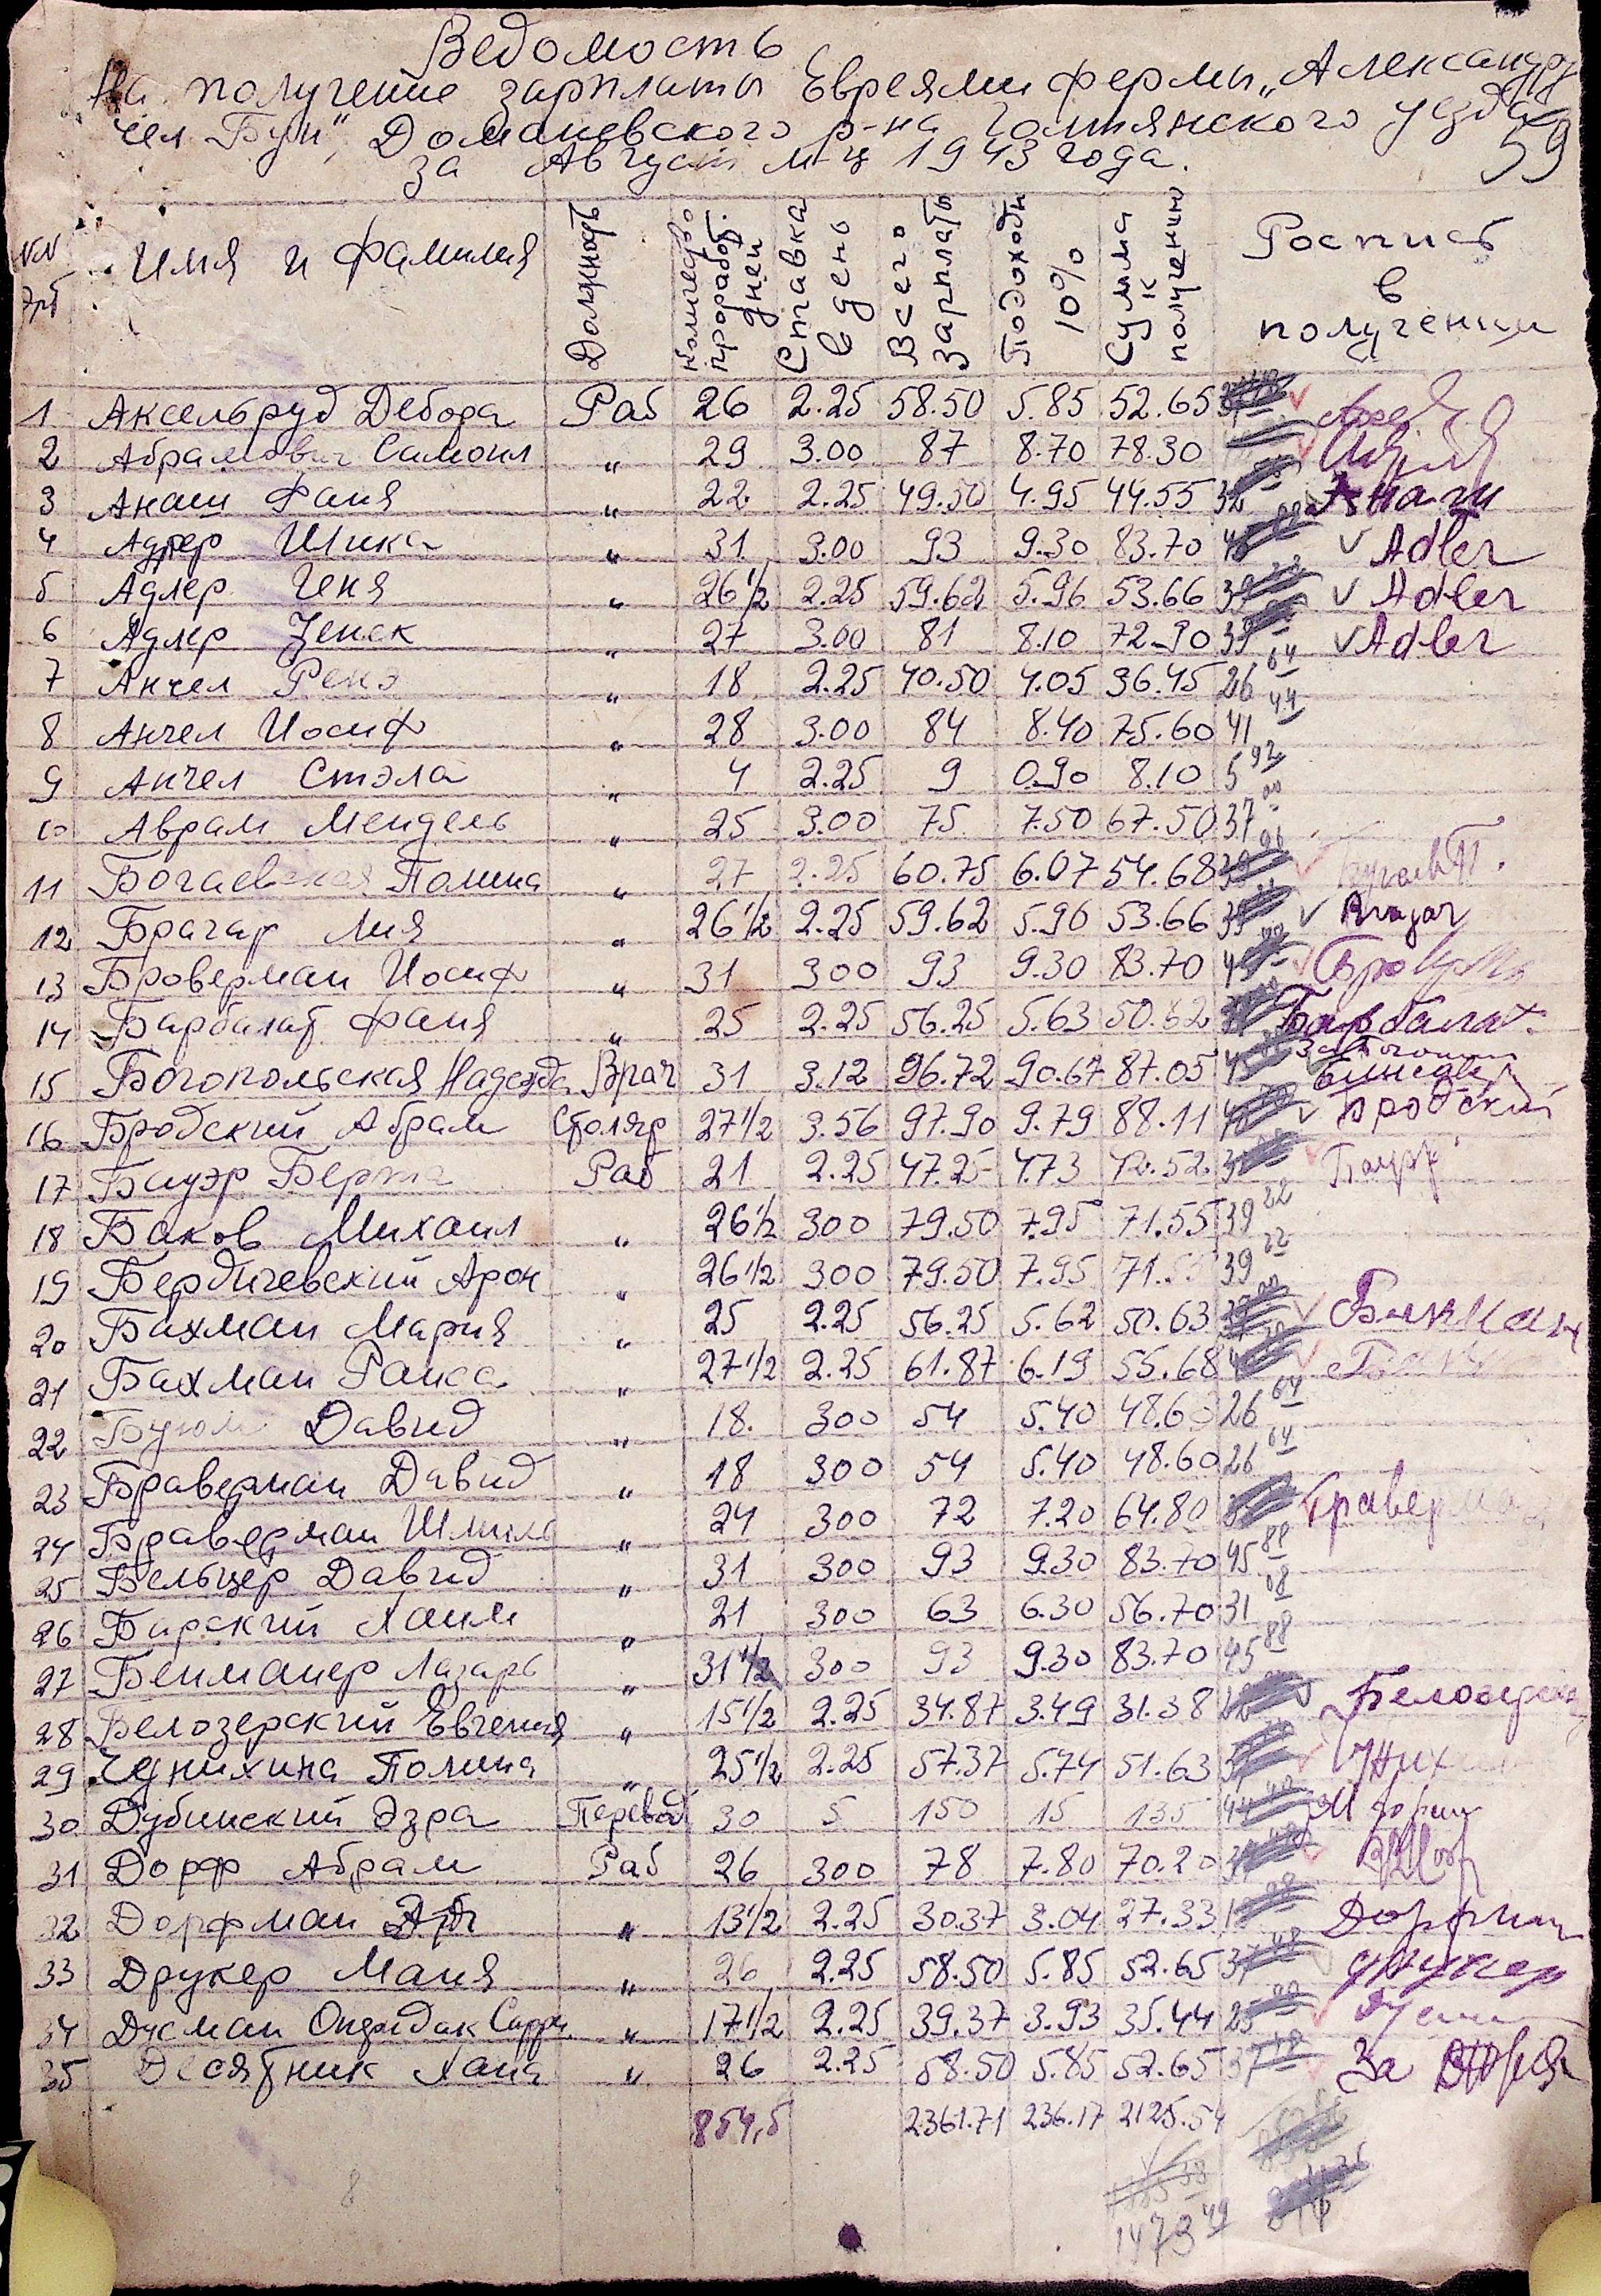 Ведомость
На получение зарплаты Евреями фермы „Александру
чел Бун", Доманевского р-на Голтянского уезда
за Август м-ц 1943 года.
59
NN
Имя и фамилия
Должность
Количество проработ. дней
Ставка в день
Всего зарплаты
Подоходн 10%
Сумма к получению
Роспись в получении
1 Аксельруд Дебора Раб 26 2.25 58.50 5.85 52.65
2 Абрамович Самоил " 29 3.00 87 8.70 78.30
3 Анаш Фаня " 22 2.25 49.50 4.95 44.55 32
4 Адлер Шика " 31 3.00 93 9.30 83.70 45 Adler
5 Адлер Геня " 26 1/2 2.25 59.62 5.96 53.66 39 Adler
6 Адлер Женек " 27 3.00 81 8.10 72.90 39 Adler
7 Анчел Ренэ " 18 2.25 40.50 4.05 36.45 26 64
8 Анчел Иосиф " 28 3.00 84 8.40 75.60 41 44
9 Анчел Стэла " 4 2.25 9 0.90 8.10 5 92
10 Аврам Мендель " 25 3.00 75 7.50 67.50 37 00
11 Богаевская Полина " 27 2.25 60.75 6.07 54.68
12 Брагар Лия " 26 1/2 2.25 59.62 5.96 53.66 39 Bragar
13 Броверман Иосиф " 31 300 93 9.30 83.70
14 Барбалат Фаня " 25 2.25 56.25 5.63 50.62 Барбалат
15 Богопольская Надежда Врач 31 3.12 96.72 90.67 87.05 45
16 Бродский Абрам Столяр 27 1/2 3.56 97.90 9.79 88.11 Бродский
17 Бауэр Берта Раб 21 2.25 47.25 4.73 42.52 31
18 Баков Михаил " 26 1/2 300 79.50 7.95 71.55 39 22
19 Бердичевский Арон " 26 1/2 300 79.50 7.95 71.55 39 22
20 Бахман Мария " 25 2.25 56.25 5.62 50.63
21 Бахман Раиса " 27 1/2 2.25 61.87 6.19 55.68
22 Давид " 18. 300 54 5.40 48.60 26 64
23 Браверман Давид " 18 300 54 5.40 48.60 26 64
24 Браверман Шмиль " 24 300 72 7.20 64.80 Браверман
25 Бельцер Давид " 31 300 93 9.30 83.70 45 88
26 Барский Хаим " 21 300 63 6.30 56.70 31 08
27 Бенманер Лазарь " 31 1/2 300 93 9.30 83.70 45 88
28 Белозерский Евгения " 15 1/2 2.25 34.87 3.49 31.38
29 Полина " 25 1/2 2.25 57.37 5.74 51.63
30 Дубинский Эзра Перевод 30 5 150 15 135 44
31 Дорф Абрам Раб 26 300 78 7.80 70.20
32 Дорфман " 13 1/2 2.25 30.37 3.04 27.33 Дорфман
33 Друкер Маня " 26 2.25 58.50 5.85 52.65 37 Друкер
34 Дусман " 17 1/2 2.25 39.37 3.93 35.44 25
35 Десятник Хана " 26 2.25 58.50 5.85 52.65 37 За
854,5 2361.71 236.17 2125.54
1473 49
8